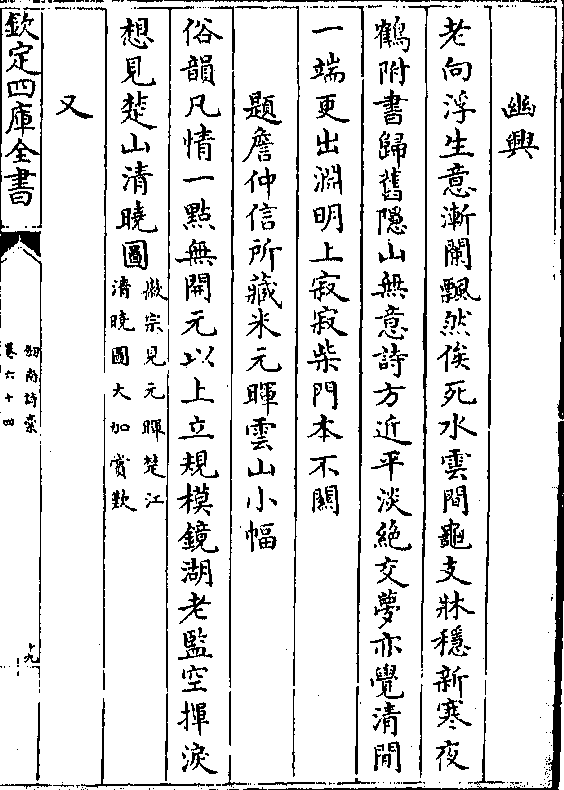 幽興
老向浮生意漸闌飄然俟死水雲間龜支牀穩新寒夜
鶴附書歸舊隱山無意詩方近平淡絶交夢亦覺清閒
一端更出淵明上寂寂柴門本不關
題詹仲信所藏米元暉雲山小幅
俗韻凡情一點無開元以上立規模鏡湖老監空揮淚
想見楚山清曉圖
徽宗見元暉楚江
清曉圖大加賞歎
又
欽定四庫全書
劍南詩稾
卷六十四
十九